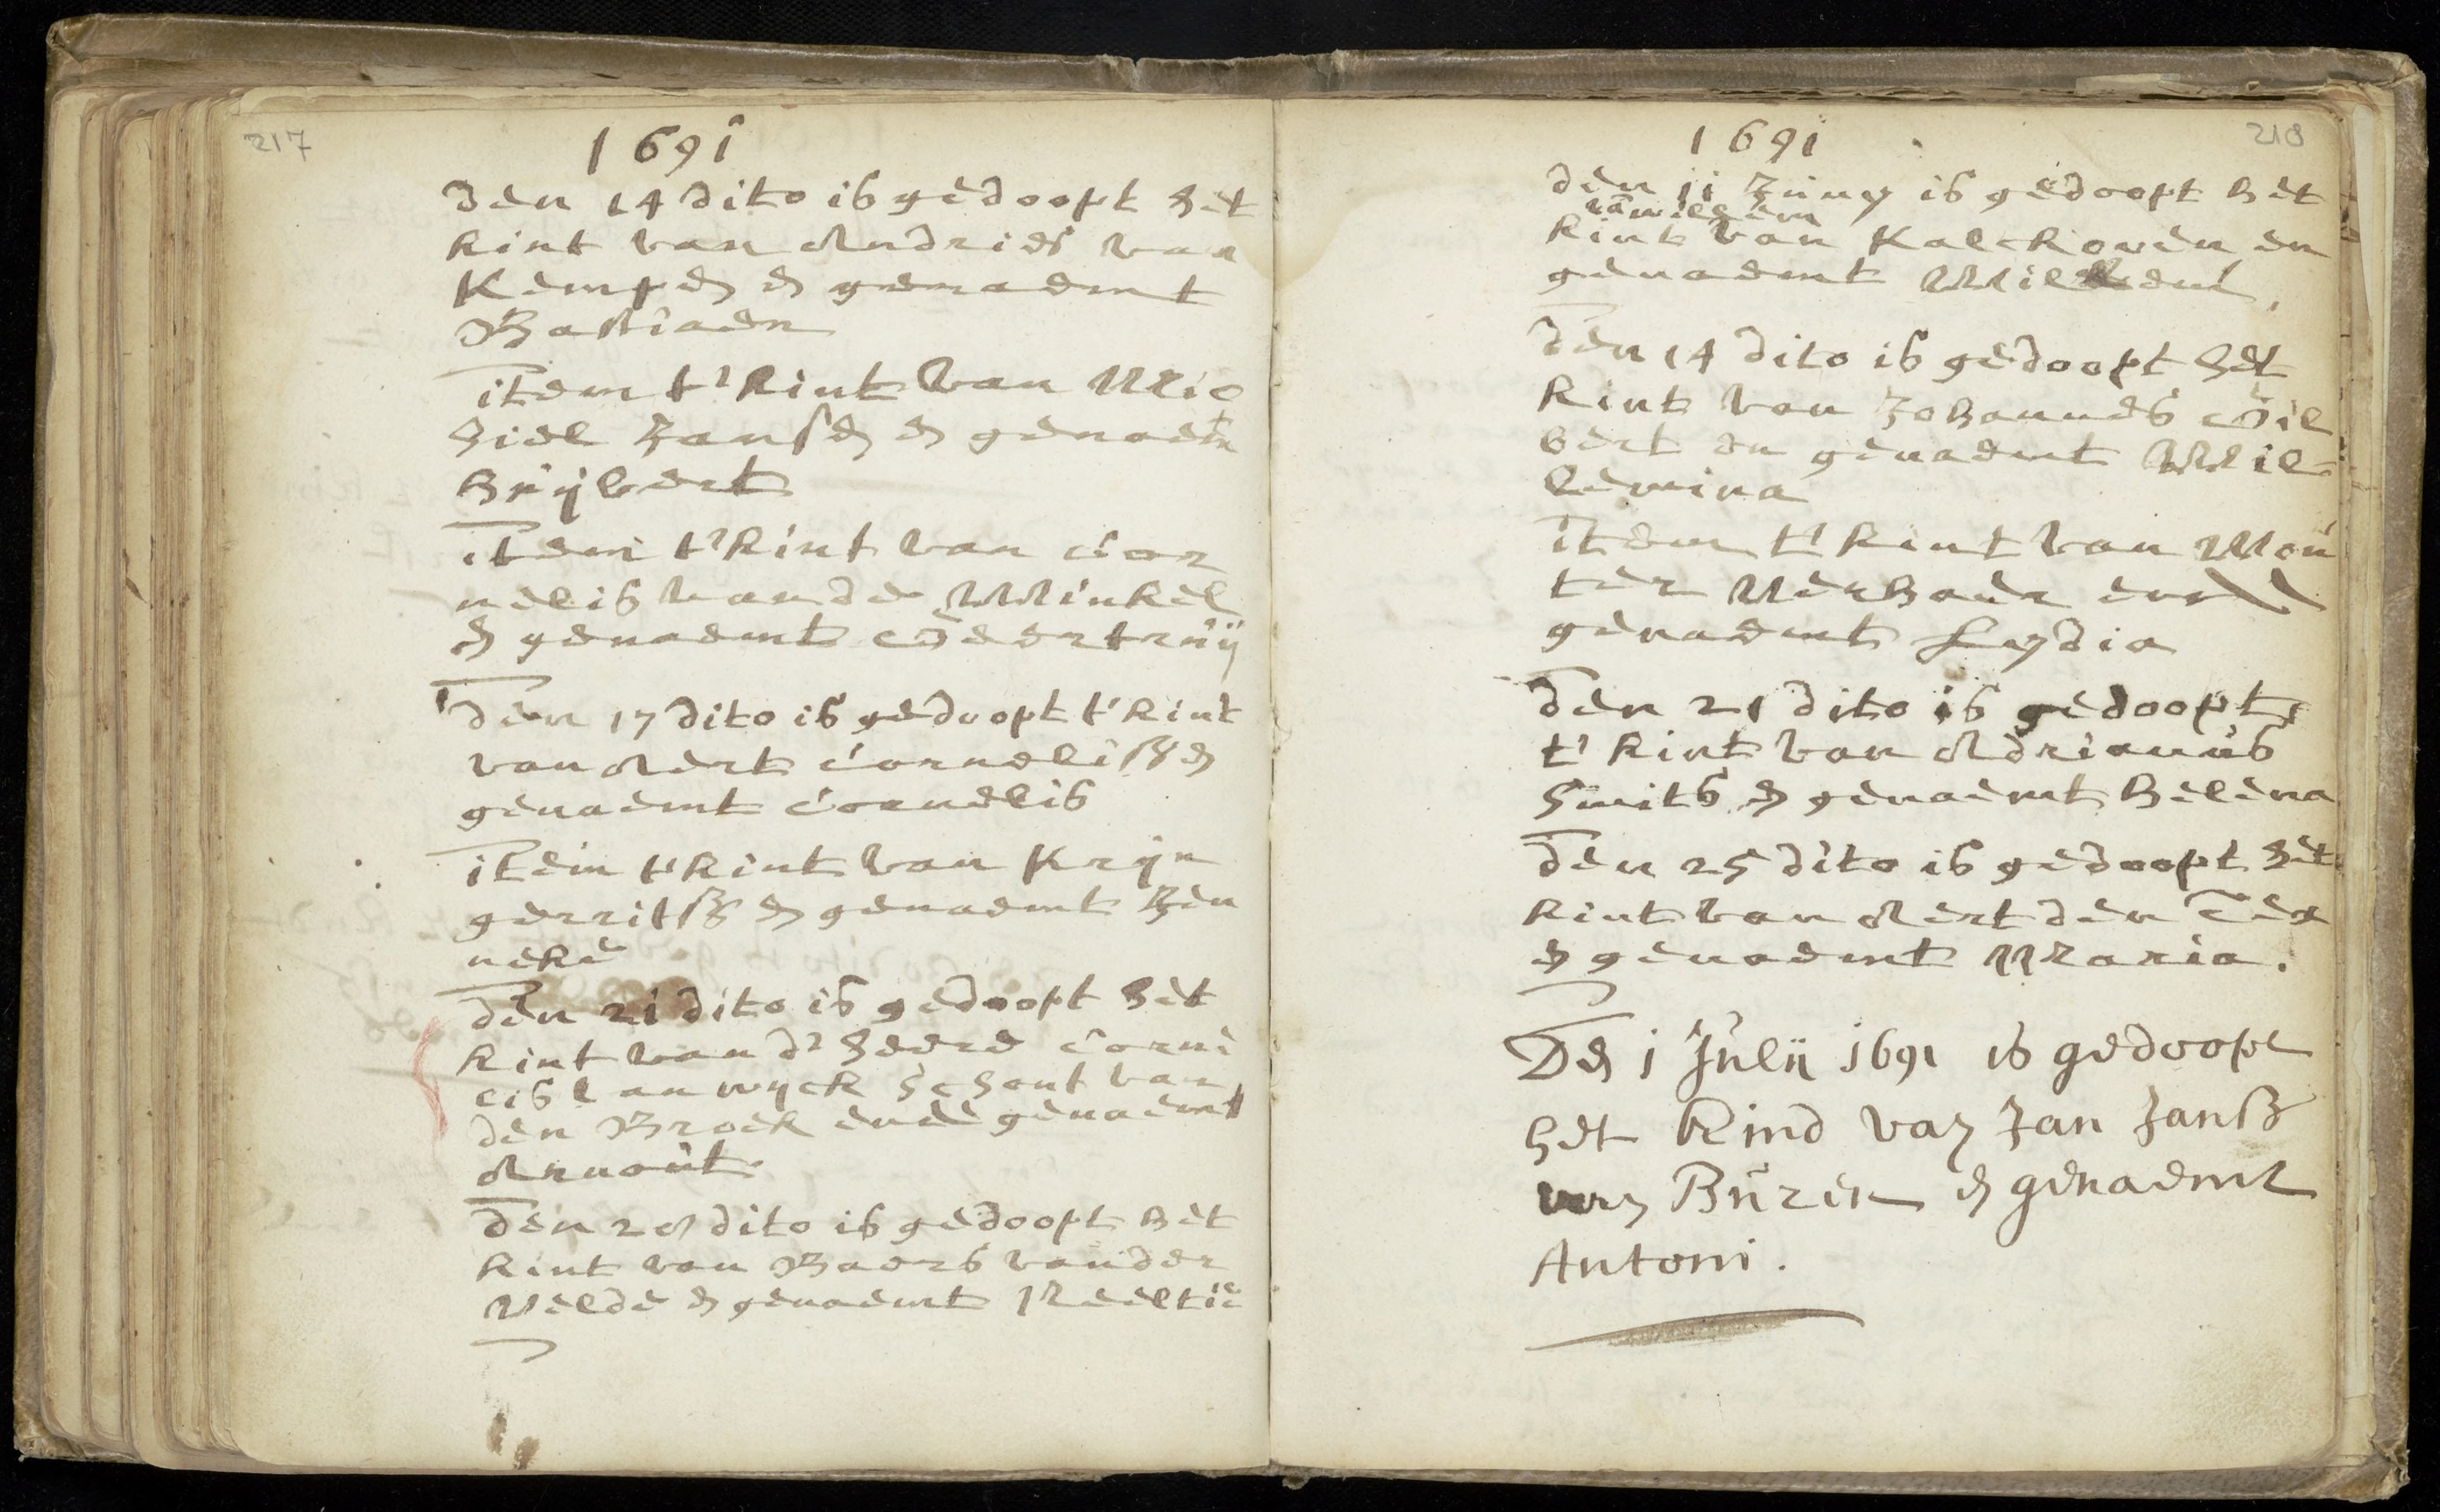 217
1691
Den 14 dito is gedoopt het
kint van Andries van
Kempen en genaemt
Bastiaen
item t' kint van Mic
hiel Jansen en genaemt
Huijbert
item t' kint van Cor
nelis van de Winkel
en genaemt Geertruij
den 17 dito is gedoopt t' kint
van Aert Cornelissen
genaemt Cornelis
item t' kint van Krijn
gerritss en genaemt Jen
neke
den 21 dito is gedoopt het
kint van d' heere Corne
lis van wyck Schout van
den Broek ende genaemt
Arnout
den 28 dito is gedoopt het
kint van Baers vander
Velde en genaemt Neeltie
218
1691
den 11 Juny is gedoopt het
van willem
kint van Kalckoven en
genaemt Willem
den 14 dito is gedoopt het
kint van Johannes Gil
bert en genaemt Wil-
lemina
item t' kint van Wou
ter Verhaer ende
genaemt Leydia
den 21 dito is gedoopt
t' kint van Adrianus
Smits en genaemt Helena
den 25 dito is gedoopt het
kint van Aert den
en genaemt Maria.
Den 1 Julij 1691 is gedoopt
het kind van Jan Janss
van Buren en genaemt
Antoni.